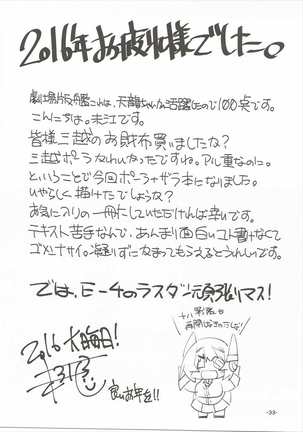 2016年お疲れ様でした。
劇場版艦これは、天龍ちゃんが活躍したので100点です。
こんにちは。未江です。
皆様三越のお財布買いましたな?
三越ポーラかわいかったですね。アル重なのに。
ということで今回ポーラ+ザラ本になりました。
いやらしく描けたでしょうな?
お気に入りの一冊にしていただければ幸いです。
テキスト苦手なんで、あんまり面白いコト書けなくて
ゴメンナサイ。凝りずにかまってもらえるとうれしいです。
では、E-4のラスダン頑張リマス!
2016 大晦日!
良いお年を!!
-33-